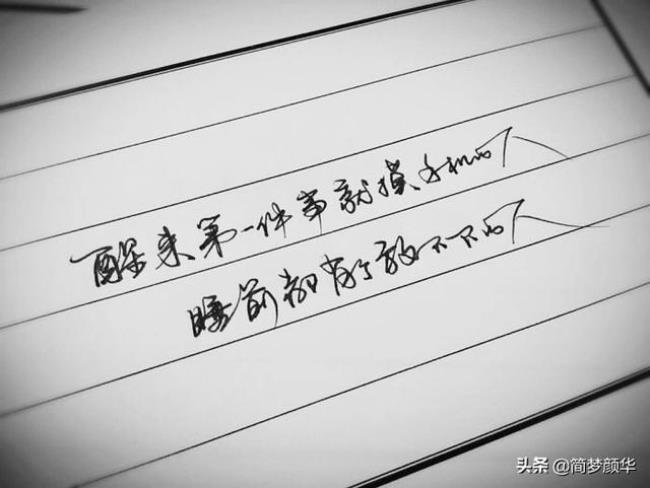 醒来第一件事就摸手机的人
睡前都有了放不下的人
头条 @简梦颜华